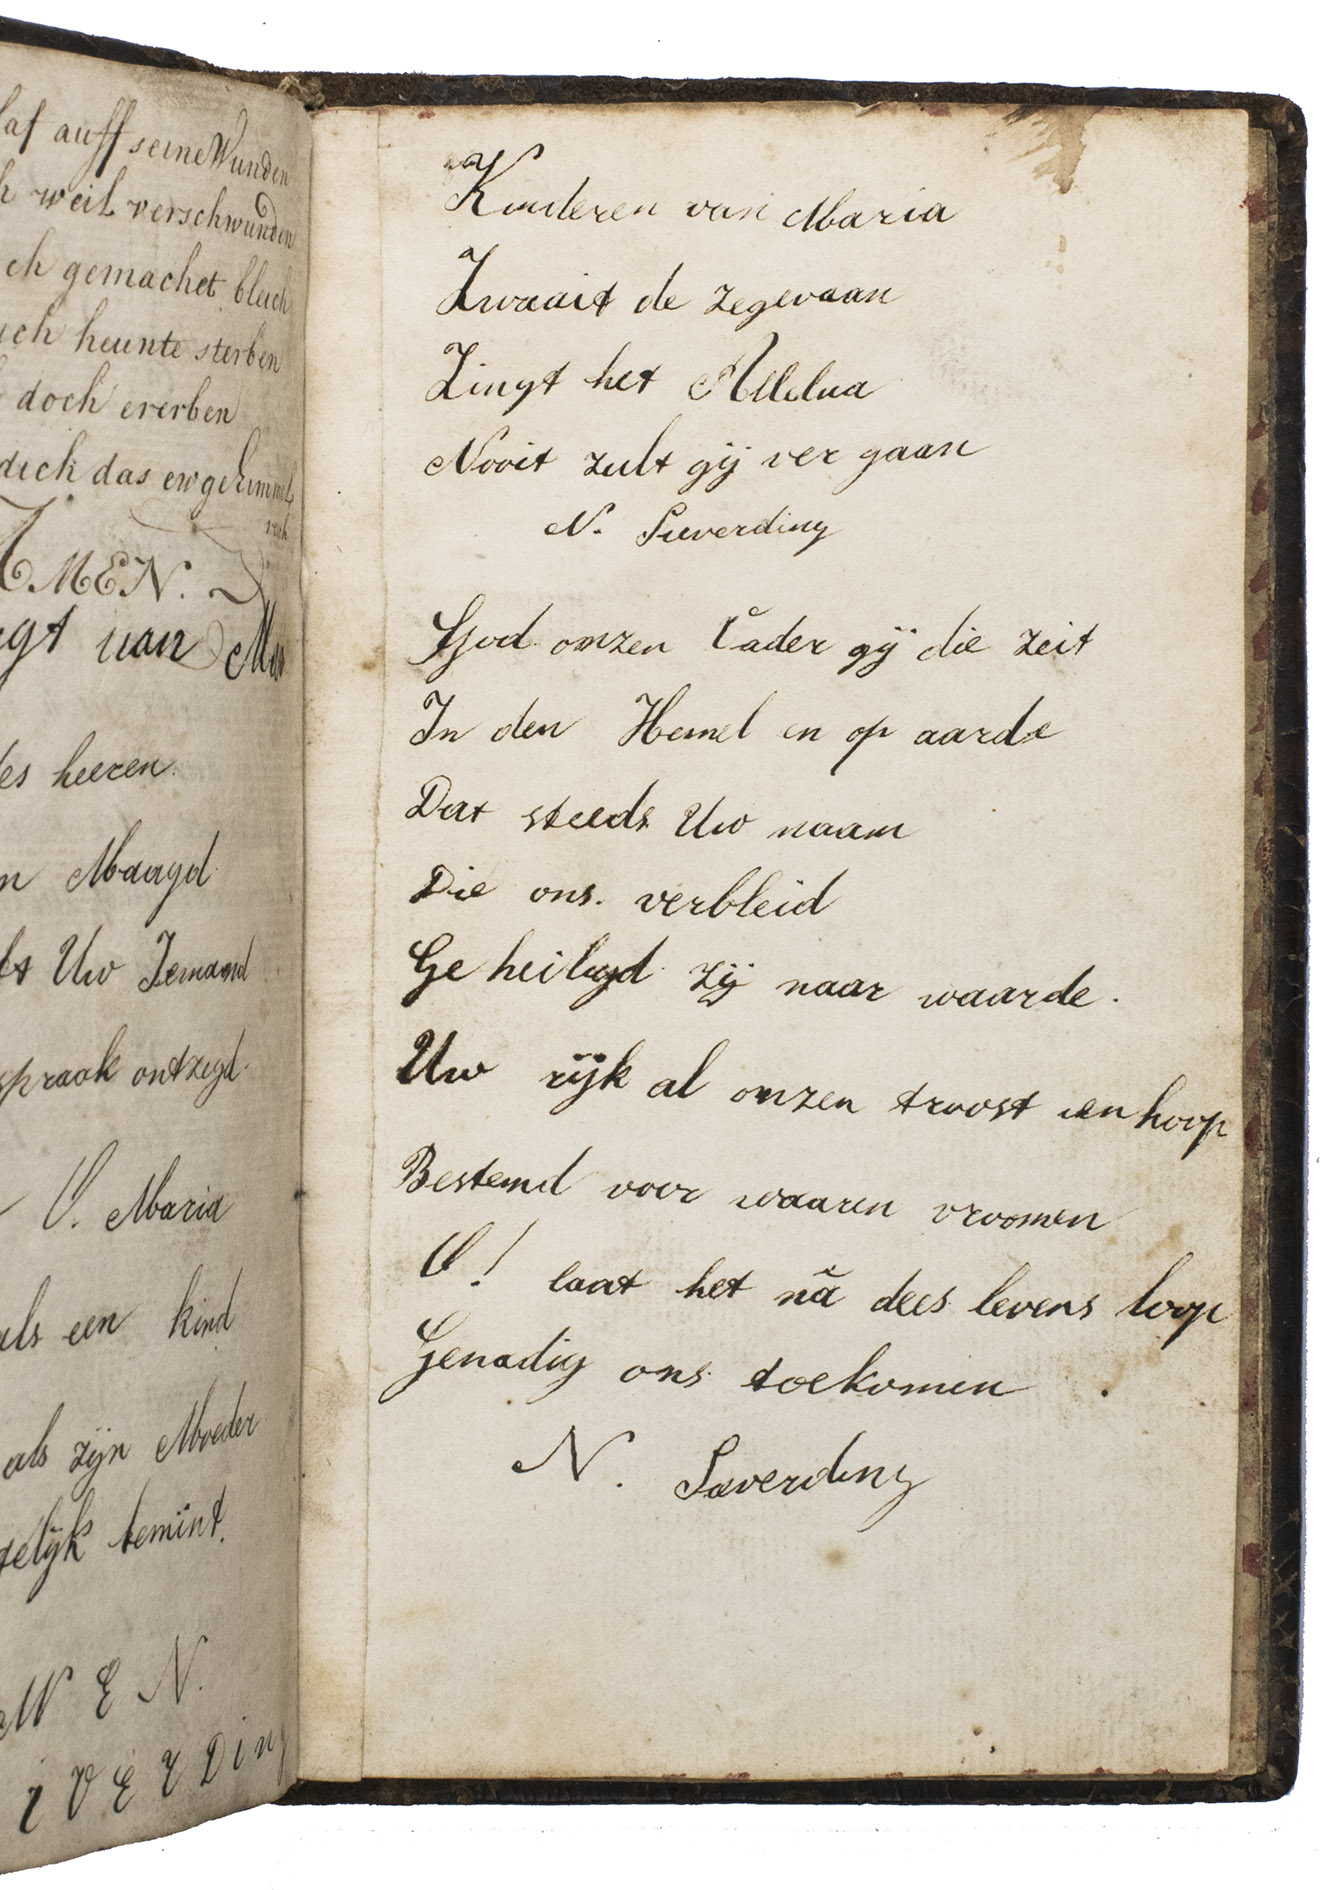 af auff seine Wunden
weil verschwunden
ch gemachet bleich
ich heunte sterben
doch ererben
dick das
AMEN.
van
des heeren
Maagd
Uw Iemand
spraak ontzegd
O. Maria
als een kind
als zijn Moeder
bemint.
M E N.
i V E R D i n g
Kinderen van Maria
Zwaait de zegevaan
Zingt het Allelua
Nooit zult gij ver gaan
N. Sieverding
God onzen Vader gij die zeit
In den Hemel en op aarde
Dat steeds Uw naam
Die ons. verbleid
Ge heiligd zij naar waarde.
Uw rijk al onzen troost en hoop
Bestemd voor waaren vroomen
O! laat het nă dees levens loop
Genadig ons toekomen
N. Sieverding